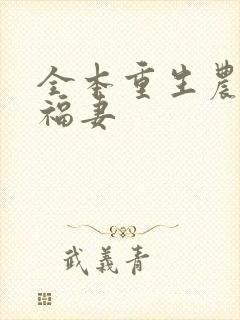 全本重生農
福妻
武義青